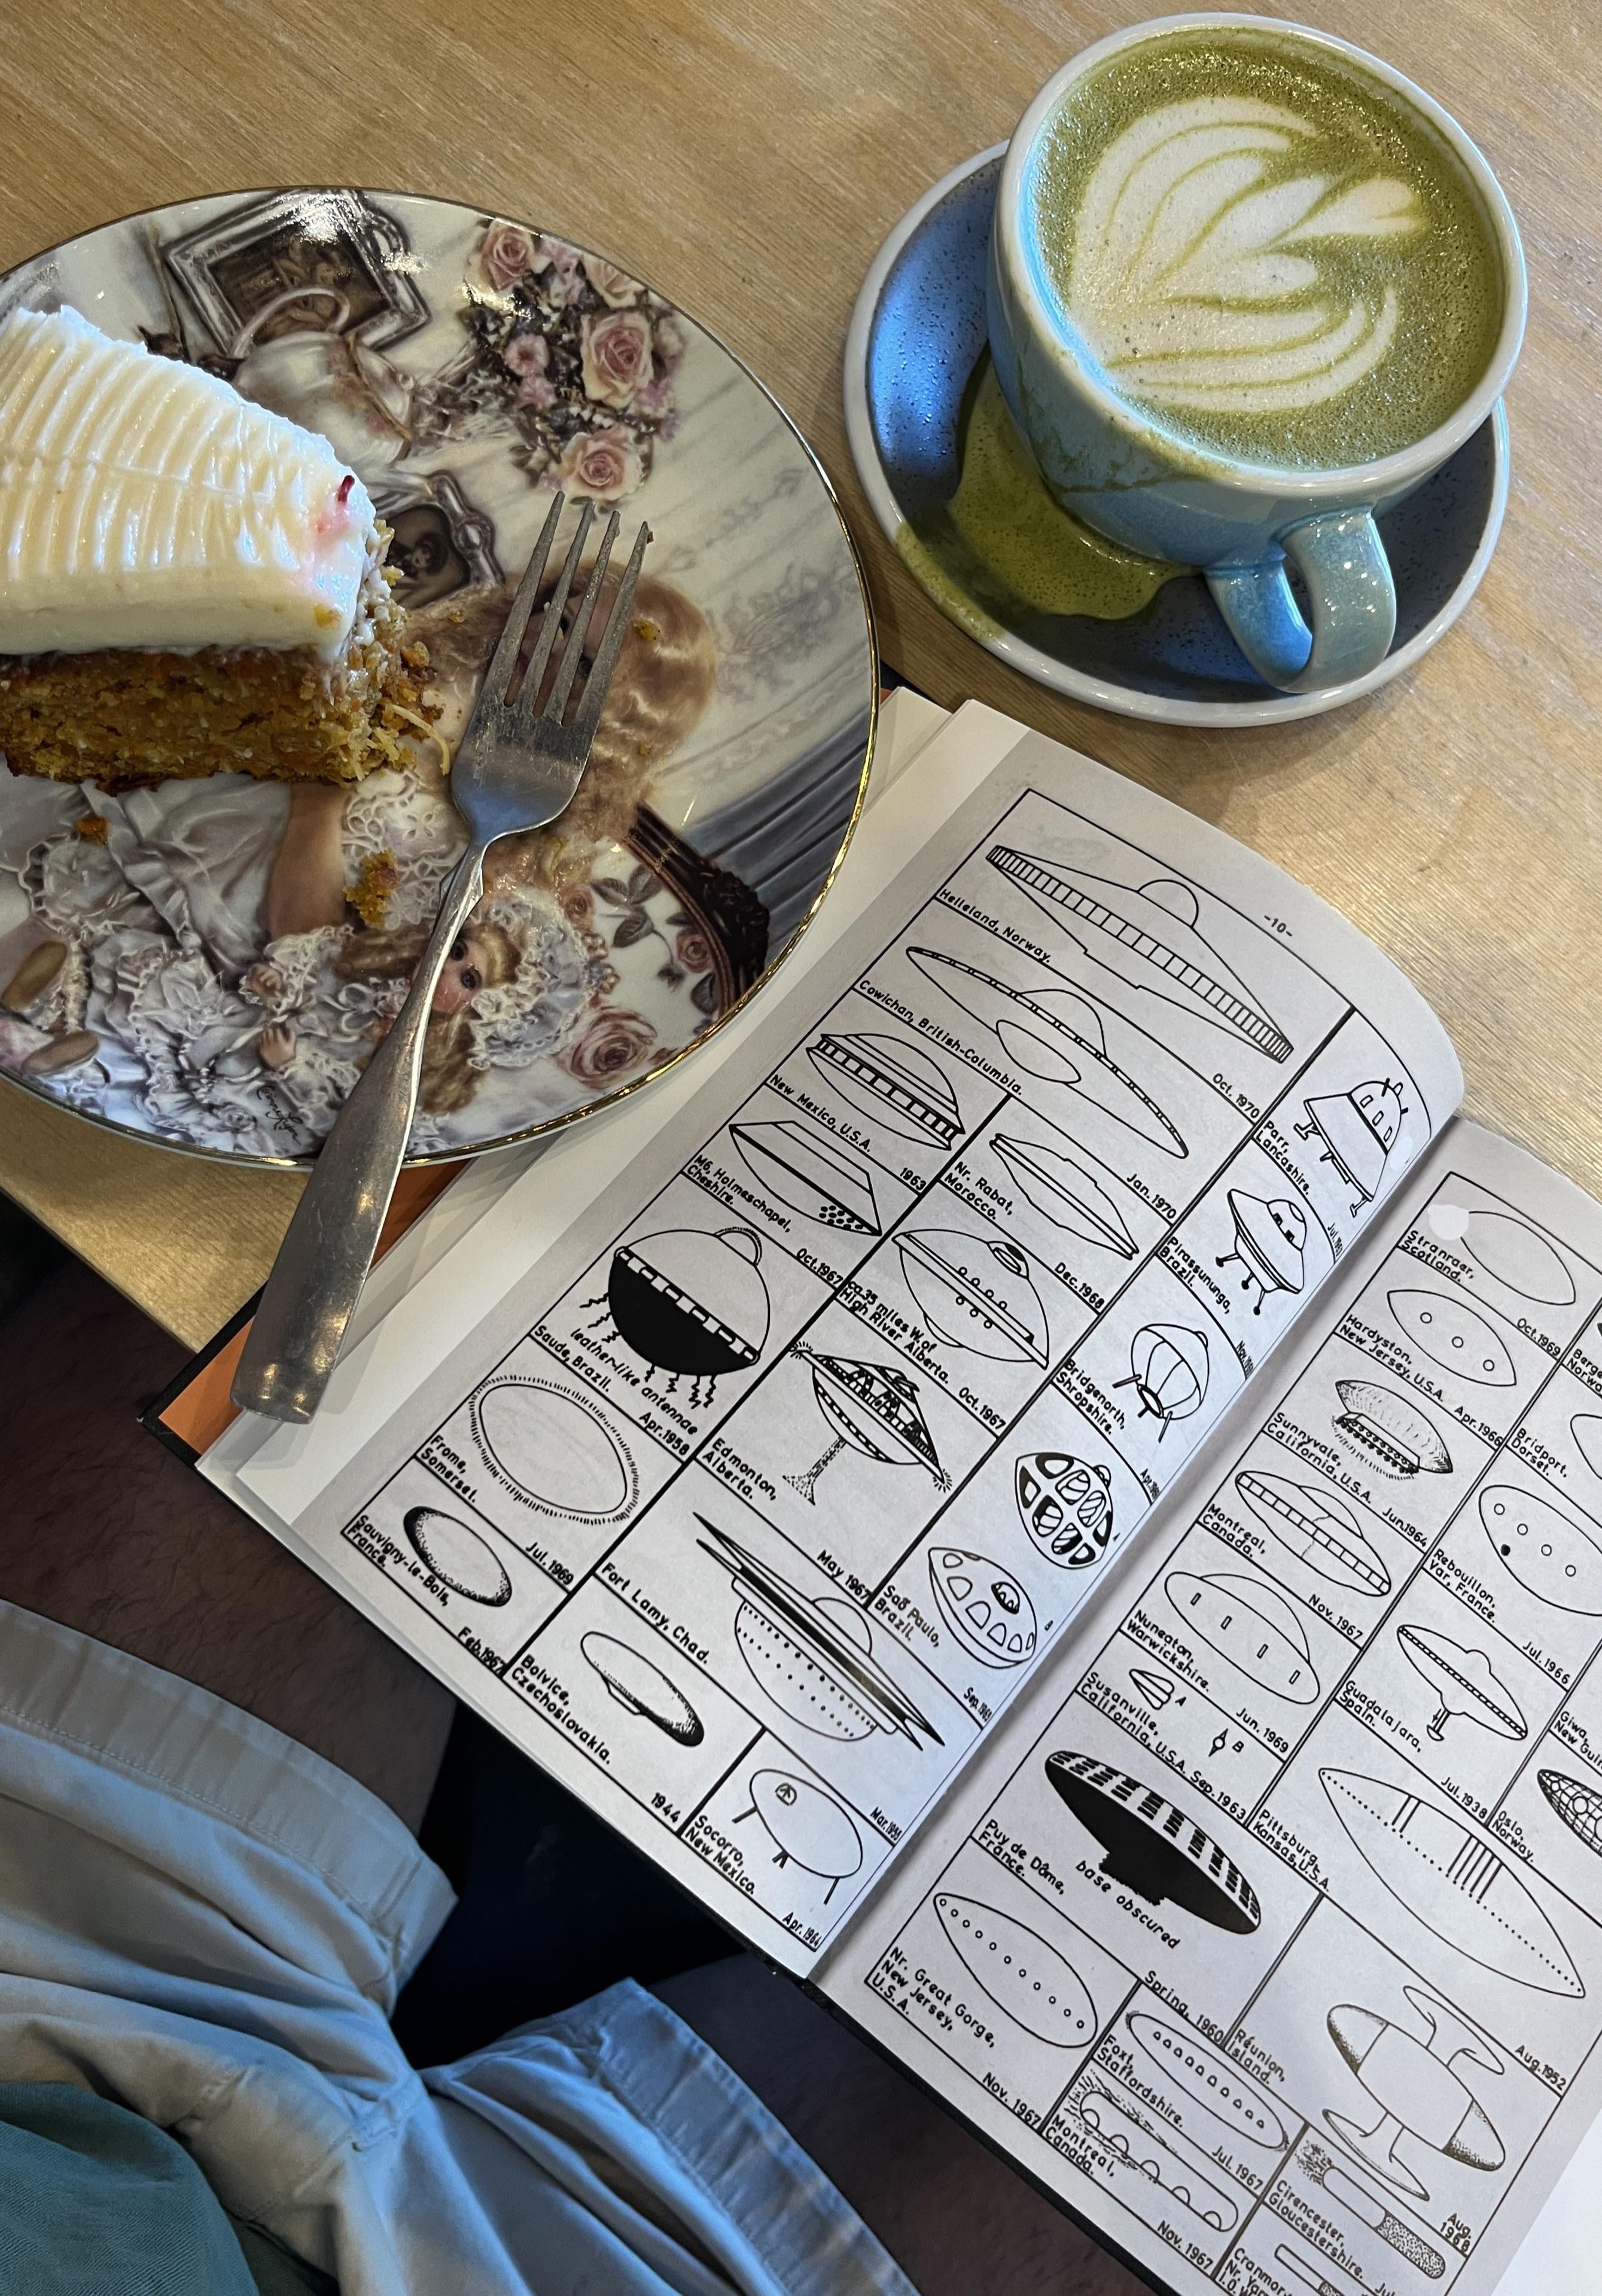 -10-
Helleland, Norway.
Oct. 1970
Cowichan, British-Columbia.
Jan. 1970
New Mexico, U.S.A.
1963
Nr. Rabat,
Morocco.
Dec. 1968
M6, Holmeschapel,
Cheshire.
Oct. 1967
ca 35 miles W. of
High River Alberta.
Oct. 1967
leather-like antennae
Saude, Brazil.
Apr. 1958
Edmonton,
Alberta.
May 1967
Frome,
Somerset.
Jul. 1969
Fort Lamy, Chad.
Sauvigny-le-Bois,
France.
Feb. 1967
Bolvice,
Czechoslovakia.
1944
Socorro,
New Mexico.
Apr. 1964
Parr,
Lancashire.
Pirassununga,
Brazil.
Bridgenorth,
Shropshire.
Saõ Paulo,
Brazil.
Stranraer,
Scotland.
Oct. 1969
Hardyston,
New Jersey, U.S.A.
Apr. 1966
Sunnyvale,
California, U.S.A.
Jun. 1964
Montreal,
Canada.
Nov. 1967
Nuneaton,
Warwickshire.
Jun. 1969
A
B
Susanville,
California, U.S.A. Sep. 1963
base obscured
Puy de Dôme,
France.
Spring, 1960
Nr. Great Gorge,
New Jersey,
U.S.A.
Nov. 1967
Foxt,
Staffordshire.
Jul. 1967
Montreal,
Canada.
Nov. 1967
Bridport,
Dorset.
Rebouillon,
Var, France.
Jul. 1966
Guadalajara,
Spain.
Jul. 1938
Pittsburg,
Kansas, U.S.A.
Aug. 1952
Réunion,
Island.
Aug.
1968
Cirencester,
Gloucestershire.
Giwa,
Oslo,
Norway.